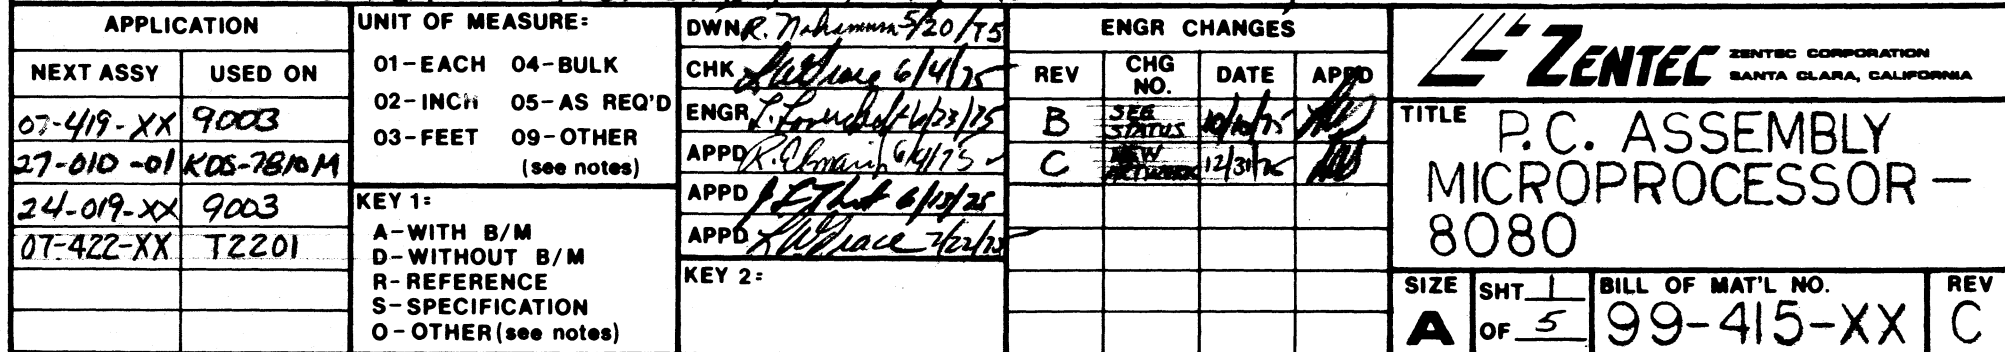 APPLICATION
NEXT ASSY USED ON
07-419-XX 9003
27-010-01 KDS-7810M
24-019-XX 9003
07-422-XX T2201
UNIT OF MEASURE:
01-EACH 04-BULK
02-INCH 05-AS REQ'D
03-FEET 09-OTHER
(see notes)
KEY 1:
A-WITH B/M
D-WITHOUT B/M
R-REFERENCE
S-SPECIFICATION
O-OTHER (see notes)
DWN R. 5/20/75
CHK 6/4/75
ENGR 6/23/75
APPD R. 6/4/75
APPD 6/13/75
APPD
KEY 2:
ENGR CHANGES
REV CHG NO. DATE APPD
B SEE STATUS 10/10/75
C NEW ARTWORK 12/31/75
ZENTEC ZENTEC CORPORATION
SANTA CLARA, CALIFORNIA
TITLE P.C. ASSEMBLY
MICROPROCESSOR-
8080
SIZE A
SHT 1
OF 5
BILL OF MAT'L NO.
99-415-XX
REV
C